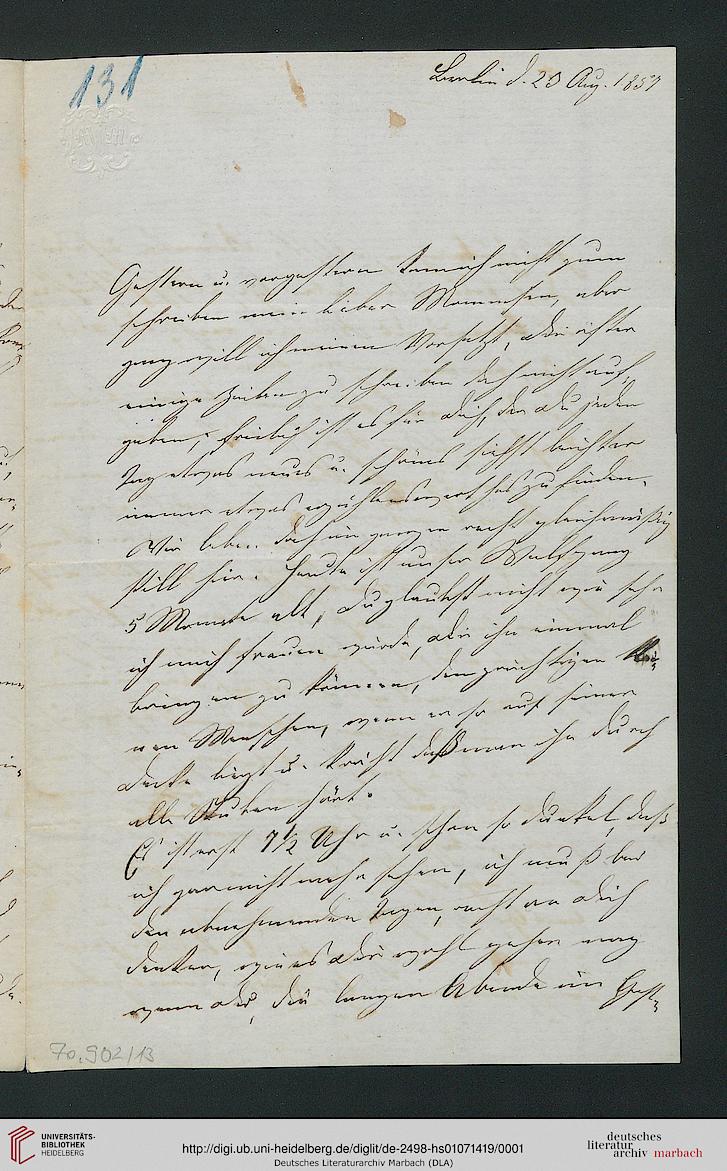 131
Berlin d. 23 Aug. 1857
Gestern u. vorgestern kam ich nicht zum
schreiben mein lieber Mommsen, aber
ganz will ich meinen Vorsatz, Dir öfter
einige Zeilen zu schreiben doch nicht auf¬
geben, freilich ist es für Dich, der Du jeden
Tag etwas neues u. schönes siehst leichter
immer etwas erzählenswerthes zu finden.
Wir leben doch im ganzen recht gleichmäßig
still hier. Heute ist unser Wolfgang
5 Monate alt, Du glaubst nicht wie sehr
ich mich freuen würde, Dir ihn einmal
bringen zu können, den prächtigen klei¬
nen Menschen, wenn er so auf seiner
Decke liegt u. kräht daß man ihn durch
alle Stuben hört.
Es ist erst 7½ Uhr u. schon so dunkel, daß
ich gar nicht mehr sehen, ich muß bei
den abnehmenden Tagen, recht an Dich
denken, wie es Dir wohl gehen mag
wenn Du, die langen Abende im
70.902/13
UNIVERSITÄTS-
BIBLIOTHEK
HEIDELBERG
http://digi.ub.uni-heidelberg.de/diglit/de-2498-hs01071419/0001
Deutsches Literaturarchiv Marbach (DLA)
deutsches
literatur
archiv marbach